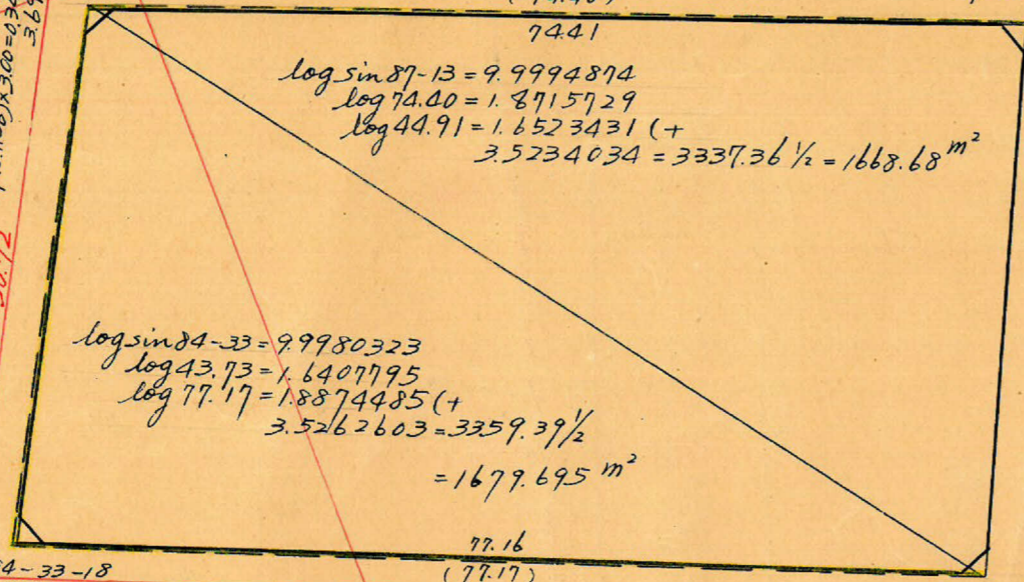 74.41
log sin 87-13 = 9.9994874
log 74.40 = 1.8715729
log 44.91 = 1.6523431 (+
3.5234034 = 3337.36 1/2 = 1668.68 m²
log sin 84-33 = 9.9980323
log 43.73 = 1.6407795
log 77.17 = 1.8874485 (+
3.5262603 = 3359.39 1/2
= 1679.695 m²
77.16
(77.17)
4-33-18